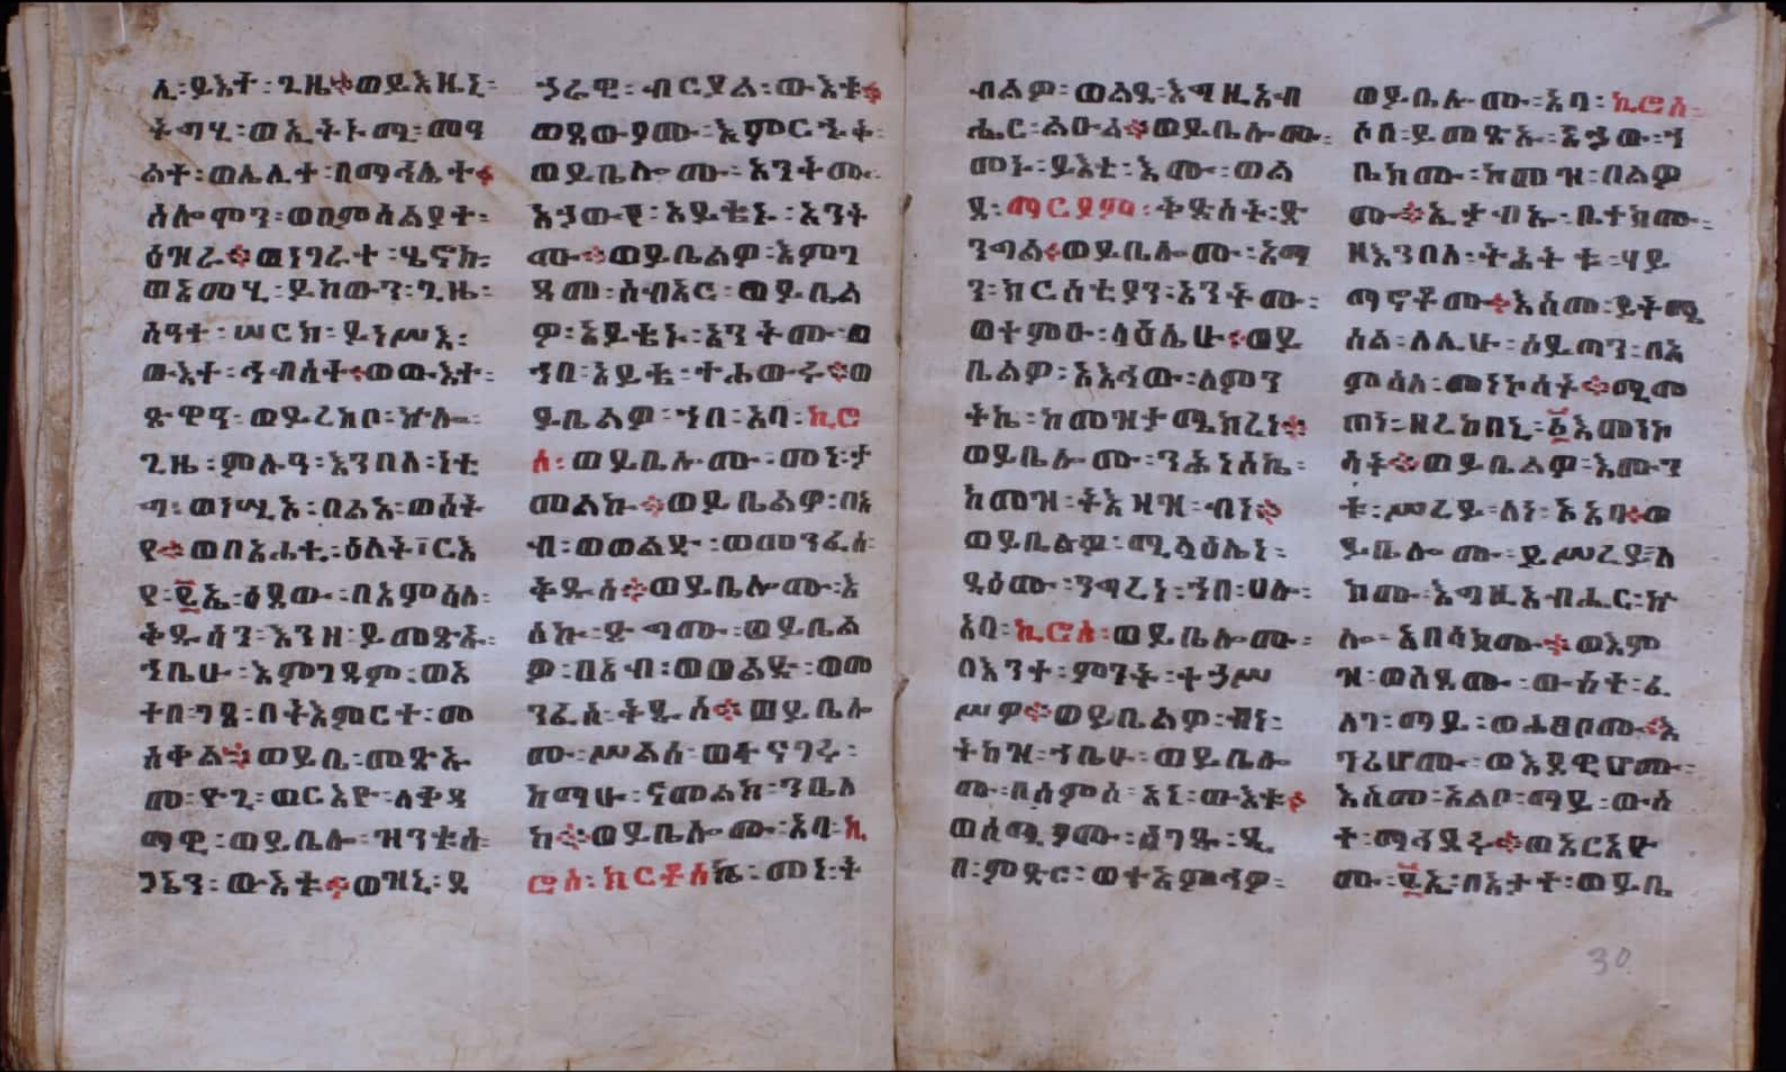 ሊ፡ይእተ፡ጊዜ፨ወይእዜኒ፡
ትግሂ፡ወኢትኑሚ፡መዓ
ልተ፡ወሌሊተ፡በማኅሌተ፨
ሰሎሞን፡ወበምሳልያተ፡
ዕዝራ፨ወነገራተ፡ሄኖክ፡
ወእመሂ፡ይከውን፡ጊዜ፡
ሰዓተ፡ሠርክ፡ይነሥእ፡
ውእተ፡ኅብስተ፨ወውእተ፡
ጽዋዓ፡ወይረክቦ፡ኵሎ፡
ጊዜ፡ምሉዓ፡እንበለ፡ነቲ
ግ፡ወነሢእ፡በልአ፡ወሰት
የ፨ወበአሐቲ፡ዕለት፡ርእ
የ፡፫ኤ፡ዕደው፡በአምሳለ፡
ቅዱሳን፡እንዘ፡ይመጽኡ፡
ኀቤሁ፡እምገዳም፡ወእ
ተበ፡ገጸ፡በትእምርተ፡መ
ስቀል፨ወይቤ፡መጽኡ
ሙ፡ዮጊ፡ወርእዮ፡ለቅዳ
ማዊ፡ወይቤሎ፡ዝንቱሰ፡
ጋኔን፡ውእቱ፨ወዝኒ፡ደ
ኃራዊ፡ብርያል፡ውእቱ፨
ወጸውዖሙ፡እምርኁቅ፡
ወይቤሎሙ፡አንትሙ፡
አኃውየ፡እይቴኑ፡አንት
ሙ፨ወይቤልዎ፡እምገ
ዳመ፡ሰብእር፡ወይቤል
ዎ፡እይቴኑ፡አንትሙ፡ወ
ኀበ፡አይቴ፡ተሐውሩ፨ወ
ይቤልዎ፡ኀበ፡አባ፡ኪሮ
ስ፡ወይቤሎሙ፡መነ፡ታ
መልኩ፨ወይቤልዎ፡በአ
ብ፡ወወልድ፡ወመንፈስ፡
ቅዱስ፨ወይቤሎሙ፡እ
ለኑ፡ድግሙ፡ወይቤል
ዎ፡በአብ፡ወወልድ፡ወመ
ንፈስ፡ቅዱስ፨ወይቤሎ
ሙ፡ሥልሰ፡ወተናገሩ፡
ከማሁ፡ናመልክ፡ንቤለ
ከ፨ወይቤሎሙ፡አባ፡ኪ
ሮስ፡ክርቶስኬ፡መነ፡ት
ብልዎ፡ወልደ፡እግዚአብ
ሔር፡ልዑል፨ወይቤሎሙ፡
መኑ፡ይእቲ፡እሙ፡ወል
ዳ፡ማርያምሰ፡ቅድስት፡ድ
ንግል፨ወይቤሎሙ፡እማ
ን፡ክርስቲያን፡አንትሙ፡
ወተምዑ፡ላዕሌሁ፨ወይ
ቤልዎ፡አአኅው፡ለምን
ትኬ፡ከመዝታሜክረነ፨
ወይቤሎሙ፡ንሕነሰኬ፡
ከመዝ፡ትእዛዝ፡ብነ፨
ወይቤልዎ፡ሚላዕሌነ፡
ዳዕሙ፡ንግረነ፡ኀበ፡ሀሎ፡
አባ፡ኪሮስ፡ወይቤሎሙ፡
በእንተ፡ምንት፡ተኃሥ
ሥዎ፨ወይቤልዎ፡ብነ፡
ትክዝ፡ኀቤሁ፡ወይቤሎ
ሙ፡በሰምሰ፡አነ፡ውእቱ፨
ወሰሚዖሙ፡ሰገዱ፡ዲ
በ፡ምድር፡ወተአምኅዎ፡
ወይቤሎሙ፡አባ፡ኪሮስ፡
ሶበ፡ይመጽኡ፡አኃው፡ኀ
ቤክሙ፡ከመዝ፡በልዎ
ሙ፨ኢታብኡ፡ቤተክሙ፡
ዘእንበለ፡ትሕትቱ፡ሃይ
ማኖቶሙ፨እስመ፡ይትሜ
ሰል፡ለሊሁ፡ሰይጣን፡በአ
ምሳለ፡መነኮሳት፨ሚመ
ጠነ፡ዘረከበኒ፡፩እመነኮ
ሳት፨ወይቤልዎ፡እሙን
ቱ፡ሥረይ፡ለነ፡ኦአባ፨ወ
ይቤሎሙ፡ይሥረይ፡ለ
ክሙ፡እግዚአብሔር፡ኵ
ሎ፡አበሳክሙ፨ወእም
ዝ፡ወሰዶሙ፡ውስተ፡ፈ
ለገ፡ማይ፡ወሐፀቦሙ፨እ
ገሪሆሙ፡ወእደዊሆሙ፡
እስመ፡አልቦ፡ማይ፡ውስ
ተ፡ማኅደሩ፨ወእርእዮ
ሙ፡፫ኤ፡በአታተ፡ወይቤ
30